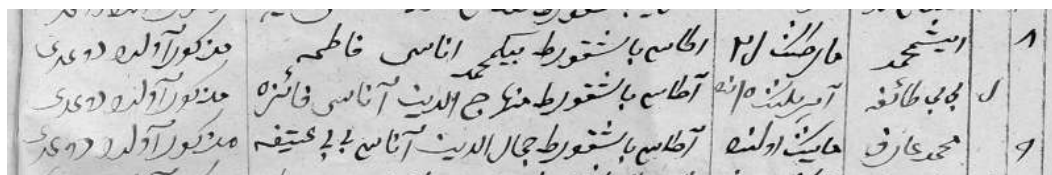 ٨ ایشمحمد مارطنڭ ٢١ اطاسی باشقورط بیکمحمد اناسی فاطمه مذکور آولده دوغدی
ل بی بی طائفه آپریلنڭ ٥ انده آطاسی باشقورط منهاج الدین آناسی فائزه مذکور آولده دوغدی
٩ محمد عارف آطاسی باشقورط جمال الدین آناسی بی بی عتیفه مذکور آولده دوغدی